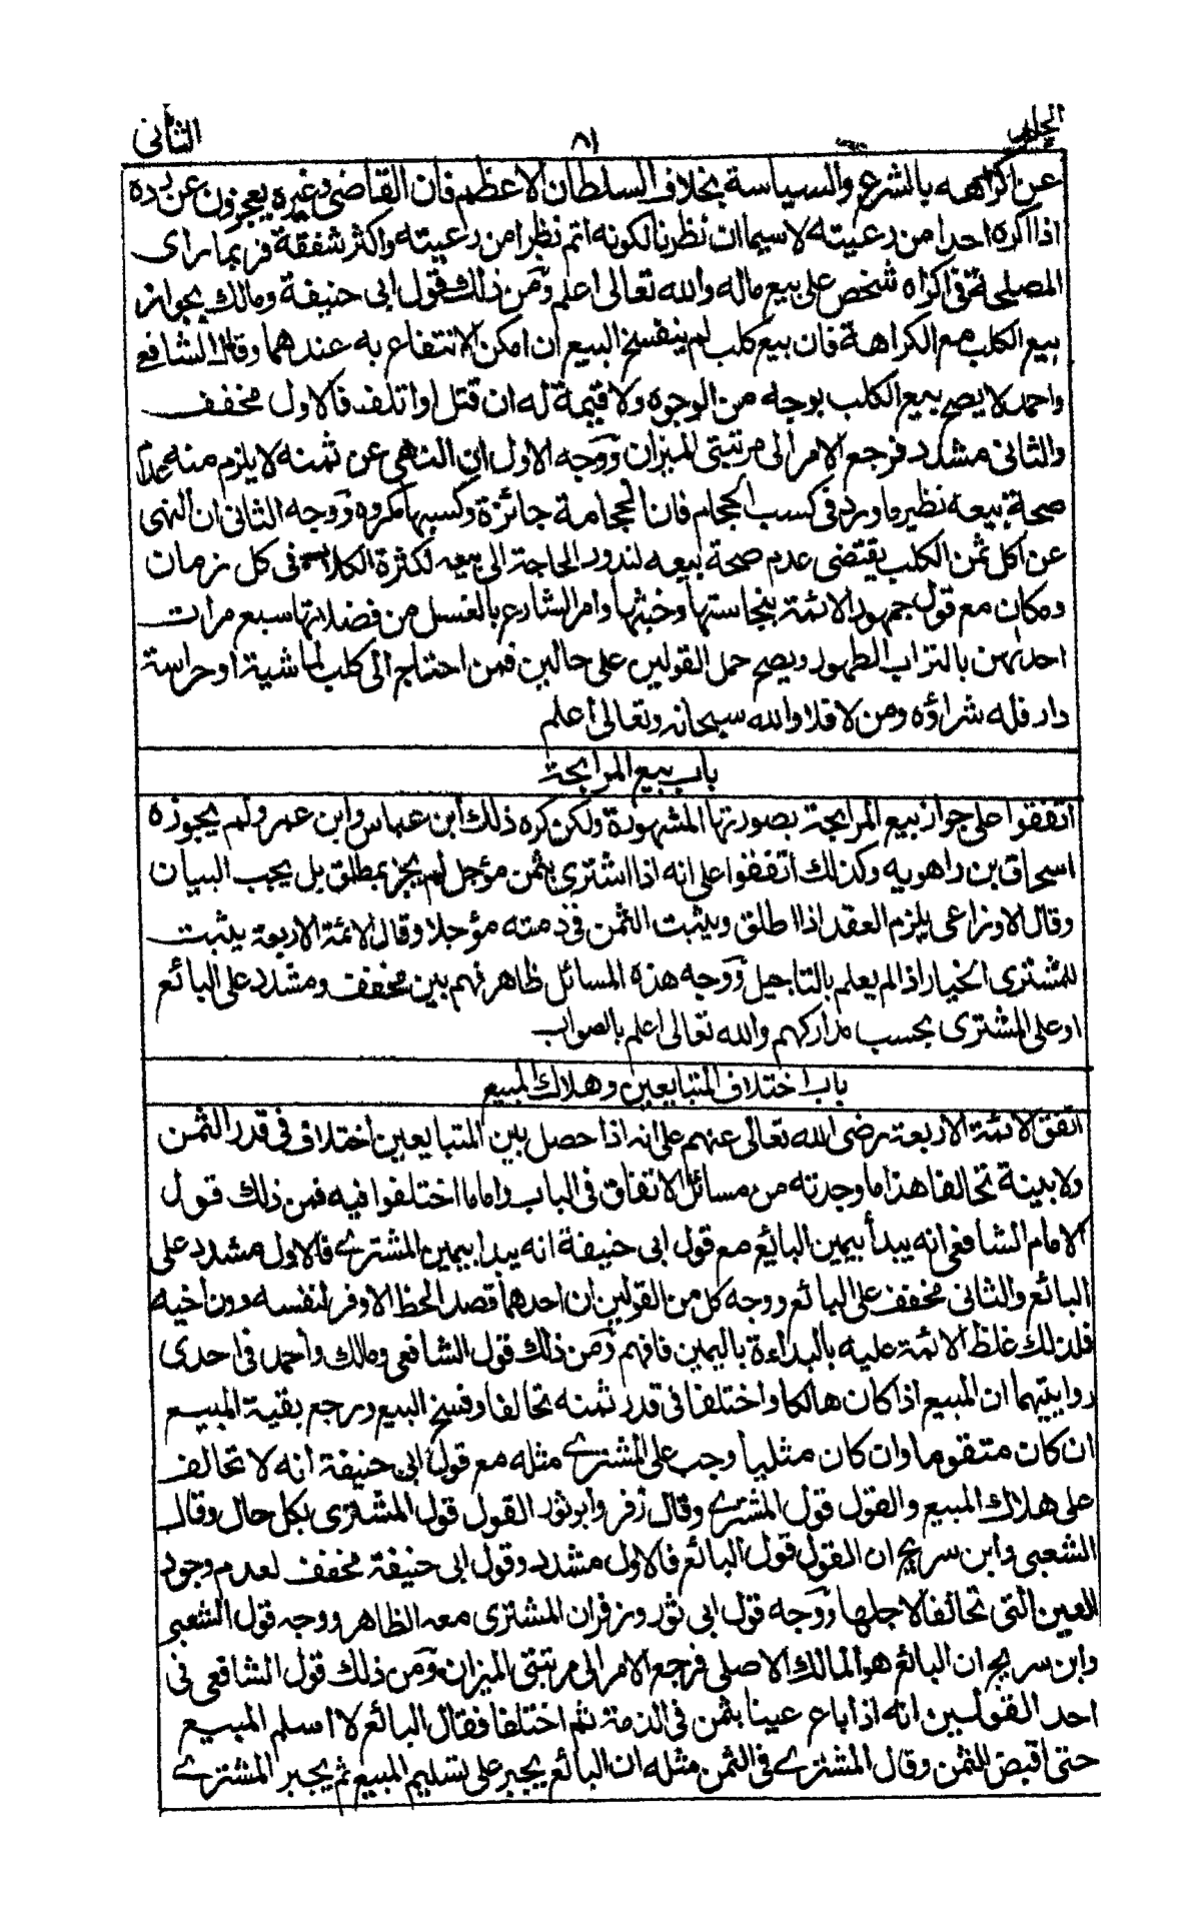 الجلد ٨١ الثانى
عن اكراهه بالشرع والسياسة بخلاف السلطان الاعظم فان القاضى وغيره يعجزون عن رده
اذا اكره احدا من رعيته لاسيما ان نظرنا لكونه اتم نظرا من رعيته واكثر شفقة فربما راى
المصلحة فى اكراه شخص على بيع ماله والله تعالى اعلم ومن ذلك قول ابى حنيفة ومالك بجواز
بيع الكلب مع الكراهة فان بيع كلب لم ينفسخ البيع ان امكن الانتفاع به عندهما وقال الشافعى
واحمد لا يصح بيع الكلب بوجه من الوجوه ولا قيمة له ان قتل او اتلف فالاول مخفف
والثانى مشدد فرجع الامر الى مرتبتى الميزان ووجه الاول ان النهى عن ثمنه لا يلزم منه عدم
صحة بيعه نظير ما ورد فى كسب الحجام فان الحجامة جائزة وكسبها مكروه ووجه الثانى ان النهى
عن اكل ثمن الكلب يقتضى عدم صحة بيعه لندور الحاجة الى بيعه لكثرة الكلاب فى كل زمان
ومكان مع قول جمهور الائمة بنجاستها وخبثها وامر الشارع بالغسل من فضلاتها سبع مرات
احدٰهن بالتراب الطهور ويصح حمل القولين على حالين فمن احتاج الى كلب لماشية او حراسة
دار فله شراؤه ومن لا فلا والله سبحانه وتعالى اعلم
باب بيع المرابحة
اتفقوا على جواز بيع المرابحة بصورتها المشهورة ولكن كره ذلك ابن عباس وابن عمر ولم يجوزه
اسحاق بن راهويه وكذلك اتفقوا على انه اذا اشترى بثمن مؤجل لم يخبر بمطلق بل يجب البيان
وقال الاوزاعى يلزم العقد اذا اطلق ويثبت الثمن فى ذمته مؤجلا وقال الائمة الاربعة يثبت
للمشترى الخيار اذا لم يعلم بالتاجيل ووجه هذه المسائل ظاهر فهم بين مخفف ومشدد على البائع
او على المشترى بحسب مداركهم والله تعالى اعلم بالصواب
باب اختلاف المتبايعين وهلاك المبيع
اتفق الائمة الاربعة رضى الله تعالى عنهم على انه اذا حصل بين المتبايعين اختلاف فى قدر الثمن
ولا بينة تحالفا هذا ما وجدته من مسائل الاتفاق فى الباب واما ما اختلفوا فيه فمن ذلك قول
الامام الشافعى انه يبدأ بيمين البائع مع قول ابى حنيفة انه يبدا بيمين المشترى فالاول مشدد على
البائع والثانى مخفف على البائع ووجه كل من القولين ان احدهما قصد الحظ الاوفر لنفسه دون اخيه
فلذلك غلظ الائمة عليه بالبداءة باليمين فافهم ومن ذلك قول الشافعى ومالك واحمد فى احدى
روايتيهما ان المبيع اذا كان هالكا واختلفا فى قدر ثمنه تحالفا وفسخ البيع ورجع بقية المبيع
ان كان متقوما وان كان مثليا وجب على المشترى مثله مع قول ابى حنيفة انه لا تحالف
على هلاك المبيع والقول قول المشترى وقال زفر وابو ثور القول قول المشترى بكل حال وقال
الشعبى وابن سريج ان القول قول البائع فالاول مشدد وقول ابى حنيفة مخفف لعدم وجود
العين التى تحالفا لاجلها ووجه قول ابى ثور وزفر ان المشترى معه الظاهر ووجه قول الشعبى
وابن سريج ان البائع هو المالك الاصلى فرجع الامر الى مرتبتى الميزان ومن ذلك قول الشافعى فى
احد القولين انه اذا باع عينا بثمن فى الذمة ثم اختلفا فقال البائع لا اسلم المبيع
حتى اقبض الثمن وقال المشترى فى الثمن مثله ان البائع يجبر على تسليم المبيع ثم يجبر المشترى